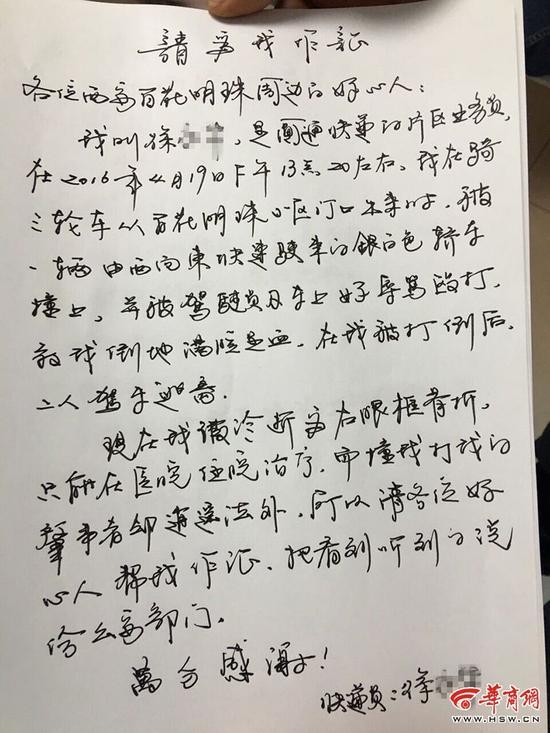 請为我作証
各位西安百花明珠周边的好心人：
我叫徐，是圆通快递的片区业务员，
在2016年4月19日下午13点20左右，我在骑
三轮车从百花明珠小区门口出来时，被
一辆由西向东快速驶来的銀白色轿车
撞上，并被驾驶员及车上好辱骂殴打，
致我倒地满脸是血，在我被打倒后，
二人驾车逃窜。
现在我被诊断为右眼眶骨折，
只能在医院住院治疗，而撞我打我的
肇事者却逍遥法外，所以请各位好
心人帮我作证，把看到听到的说
给公安部门。
萬分感谢！
快递员：徐
華商網
WWW.HSW.CN